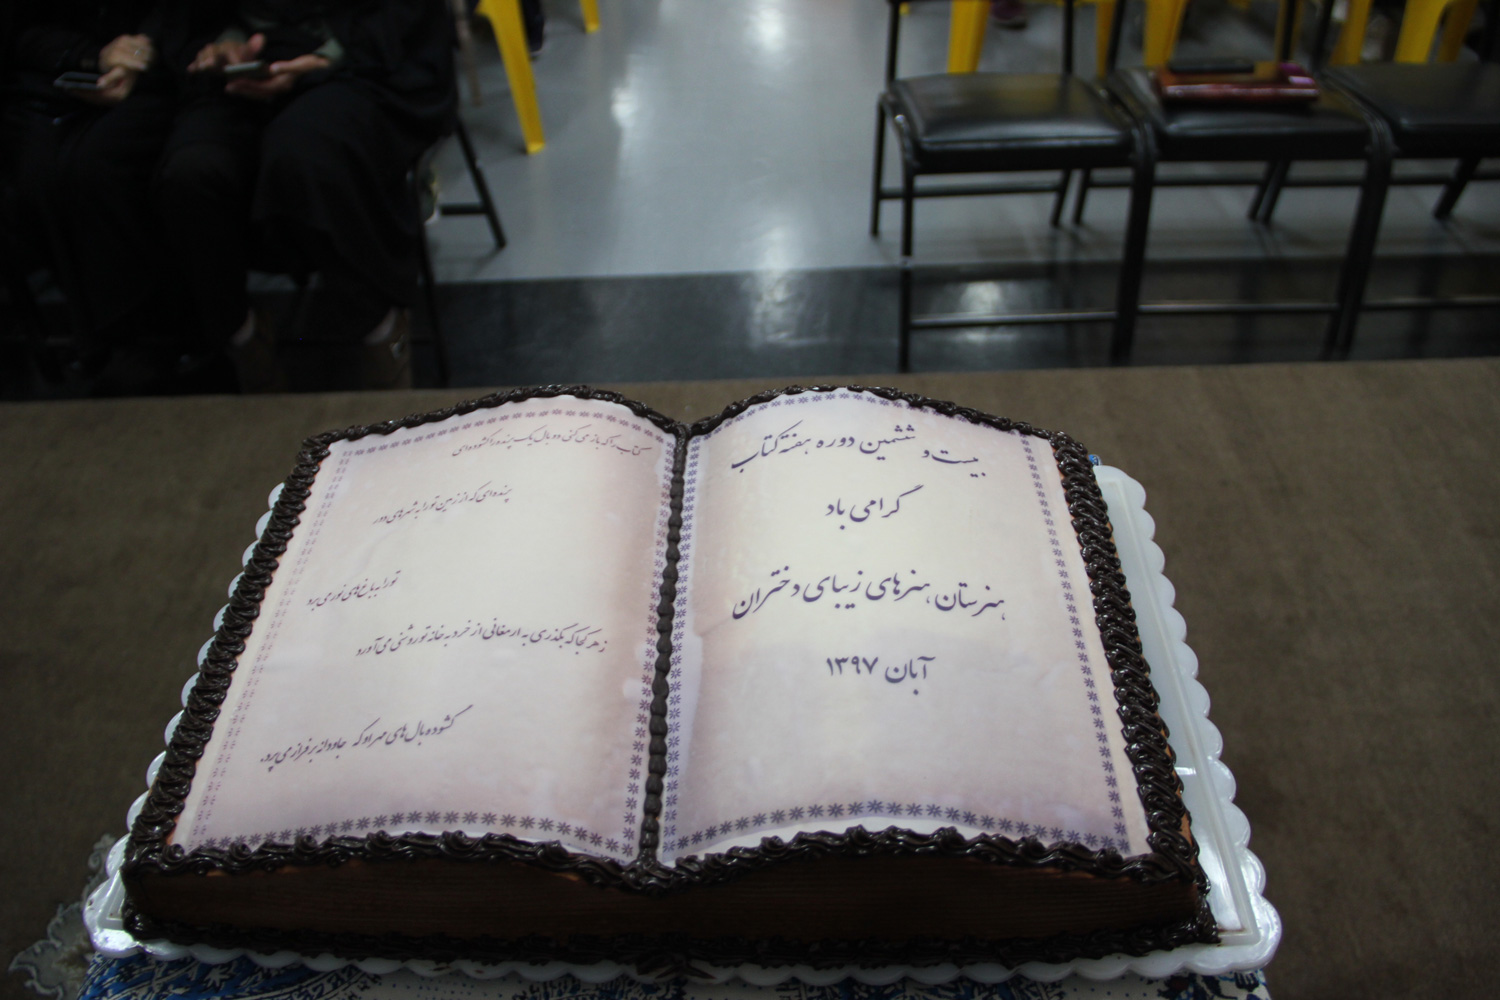 بیست و ششمین دوره هفته کتاب
گرامی باد
هنرستان هنرهای زیبای دختران
آبان ۱۳۹۷
کتاب را که باز می کنی دو بال یک پرنده را گشوده ای
پرنده ای که از زمین تو را به شهرهای دور
تو را به باغ های نور می برد
ز هر کجا که بگذری به ارمغانی از خرد به خانه تو روشنی می آورد
گشوده بال های مهر او که جاودانه بر فراز می پرد.